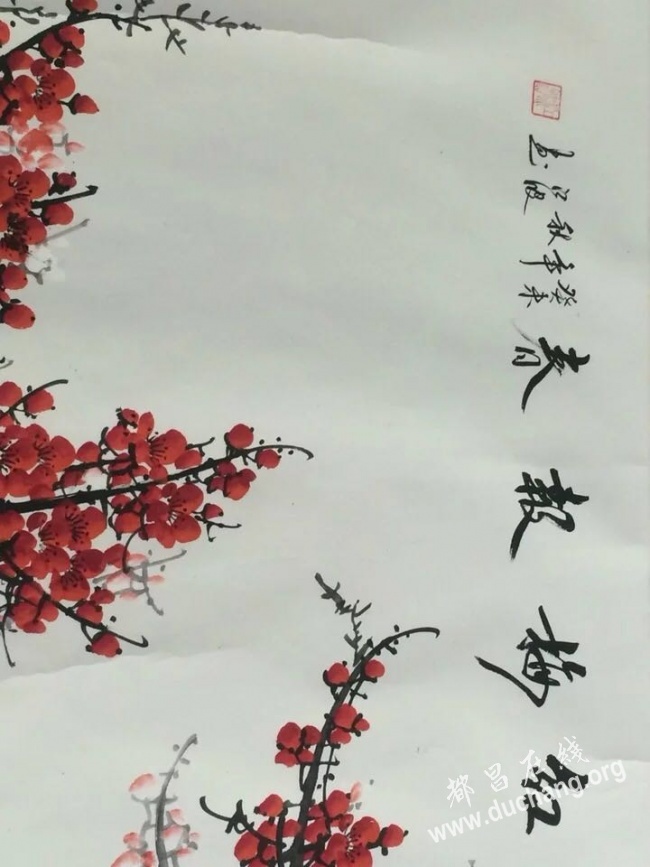 红梅報春
癸未年秋
江波画
都昌在线
www.duchang.org